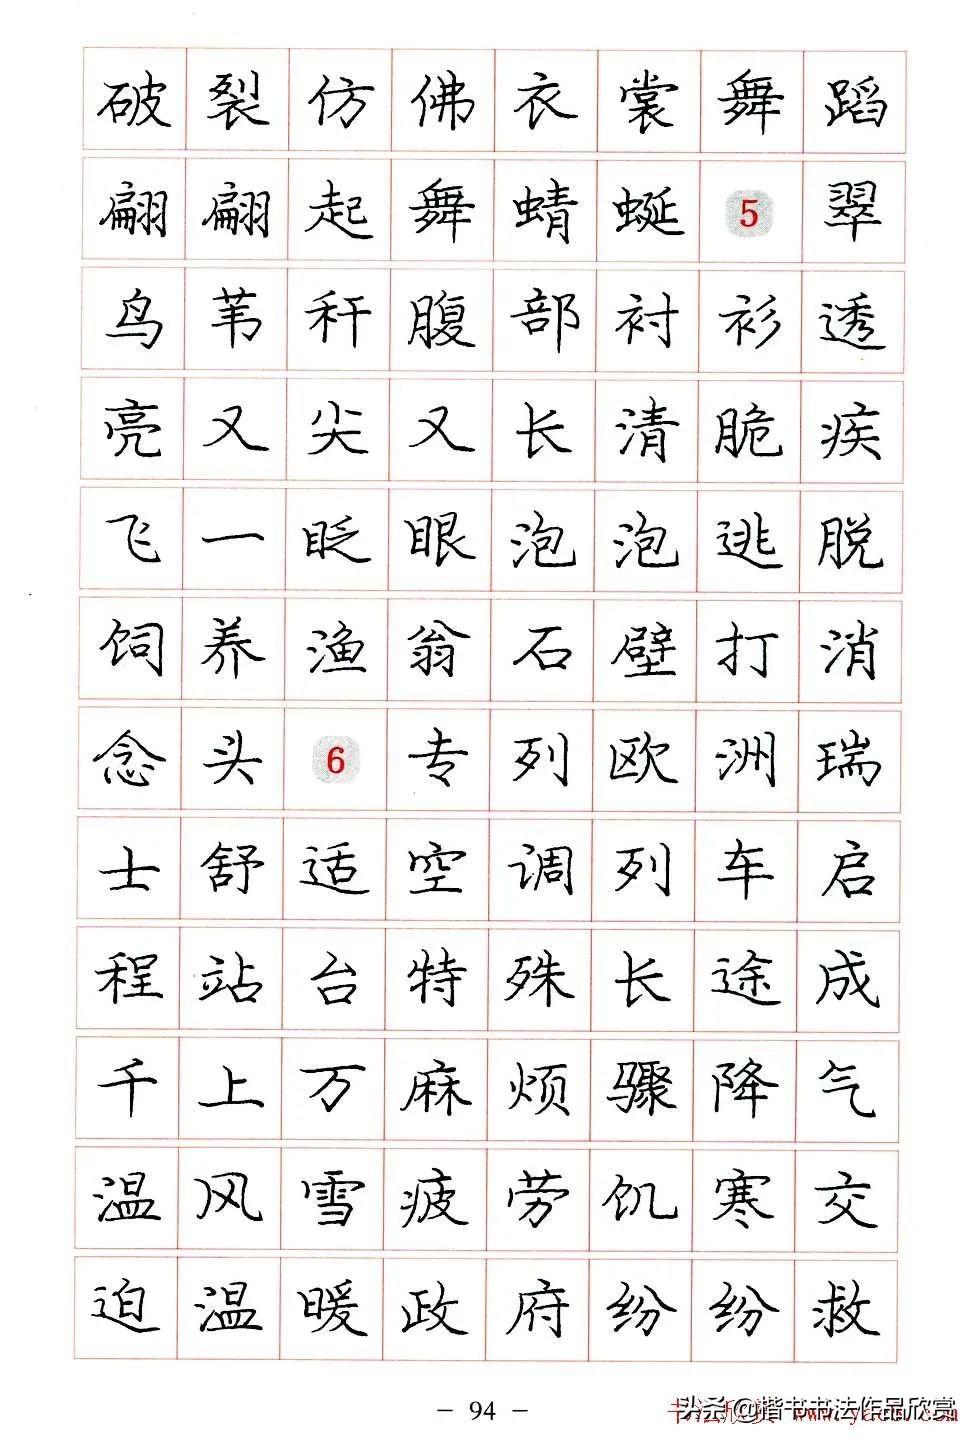 破裂仿佛衣裳舞蹈
翩翩起舞蜻蜓5翠
鸟苇秆腹部衬衫透
亮又尖又长清脆疾
飞一眨眼泡泡逃脱
饲养渔翁石壁打消
念头6专列欧洲瑞
士舒适空调列车启
程站台特殊长途成
千上万麻烦骤降气
温风雪疲劳饥寒交
迫温暖政府纷纷救
- 94 -
头条@楷书书法作品欣赏